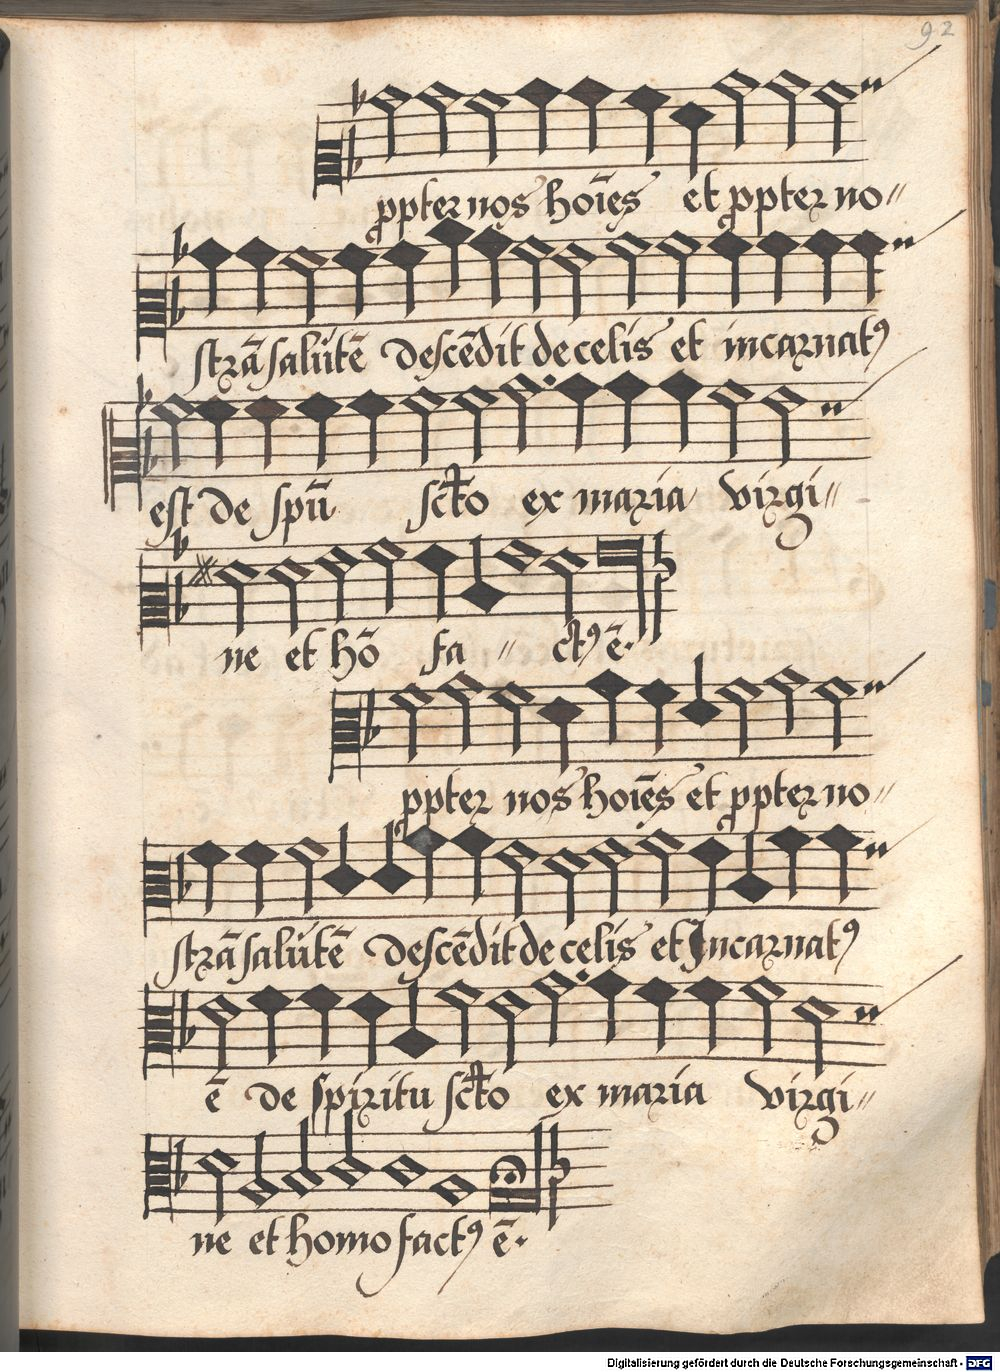 92
ppter nos hoīes et ppter no〃
strā salutē descēdit de celis et incarnatꝰ
est de spū scto ex maria virgi〃
ne et hō fa〃 ctꝰ ē.
ppter nos hoīes et ppter no〃
strā salutē descēdit de celis et Incarnatꝰ
ē de spiritu scto ex maria virgi〃
ne et homo factꝰ ē.
Digitalisierung gefördert durch die Deutsche Forschungsgemeinschaft - DFG